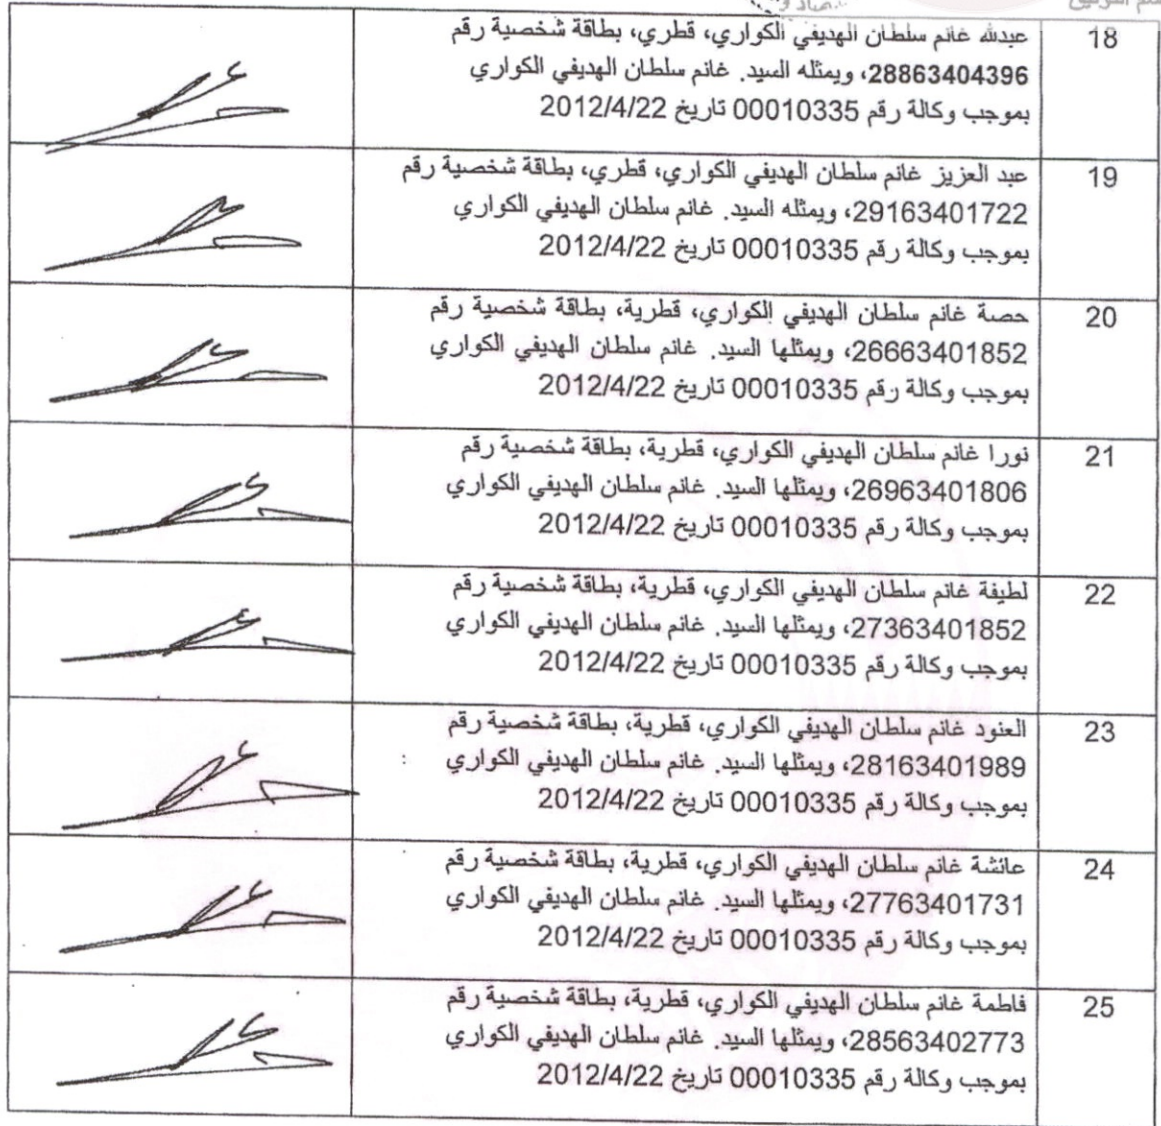 18
عبدلله غانم سلطان الهديفي الكواري، قطري، بطاقة شخصية رقم
28863404396، ويمثله السيد. غانم سلطان الهديفي الكواري
بموجب وكالة رقم 00010335 تاريخ 2012/4/22
19
عبد العزيز غانم سلطان الهديفي الكواري، قطري، بطاقة شخصية رقم
29163401722، ويمثله السيد. غانم سلطان الهديفي الكواري
بموجب وكالة رقم 00010335 تاريخ 2012/4/22
20
حصة غانم سلطان الهديفي الكواري، قطرية، بطاقة شخصية رقم
26663401852، ويمثلها السيد. غانم سلطان الهديفي الكواري
بموجب وكالة رقم 00010335 تاريخ 2012/4/22
21
نورا غانم سلطان الهديفي الكواري، قطرية، بطاقة شخصية رقم
26963401806، ويمثلها السيد. غانم سلطان الهديفي الكواري
بموجب وكالة رقم 00010335 تاريخ 2012/4/22
22
لطيفة غانم سلطان الهديفي الكواري، قطرية، بطاقة شخصية رقم
27363401852، ويمثلها السيد. غانم سلطان الهديفي الكواري
بموجب وكالة رقم 00010335 تاريخ 2012/4/22
23
العنود غانم سلطان الهديفي الكواري، قطرية، بطاقة شخصية رقم
28163401989، ويمثلها السيد. غانم سلطان الهديفي الكواري
بموجب وكالة رقم 00010335 تاريخ 2012/4/22
24
عائشة غانم سلطان الهديفي الكواري، قطرية، بطاقة شخصية رقم
27763401731، ويمثلها السيد. غانم سلطان الهديفي الكواري
بموجب وكالة رقم 00010335 تاريخ 2012/4/22
25
فاطمة غانم سلطان الهديفي الكواري، قطرية، بطاقة شخصية رقم
28563402773، ويمثلها السيد. غانم سلطان الهديفي الكواري
بموجب وكالة رقم 00010335 تاريخ 2012/4/22